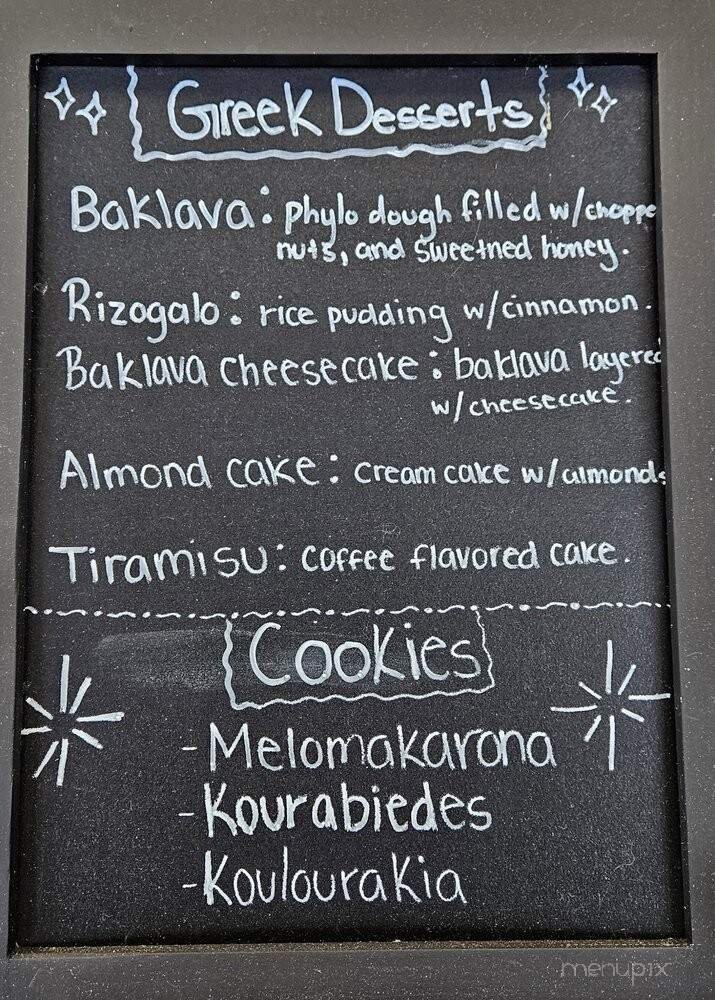 Greek Desserts
Baklava: Phylo dough filled w/choppe
nuts, and sweetned honey.
Rizogalo: rice pudding w/cinnamon.
Baklava cheesecake: baklava layered
w/cheesecake.
Almond cake: cream cake w/almonds
Tiramisu: coffee flavored cake.
Cookies
-Melomakarona
-Kourabiedes
-Koulourakia
menupix